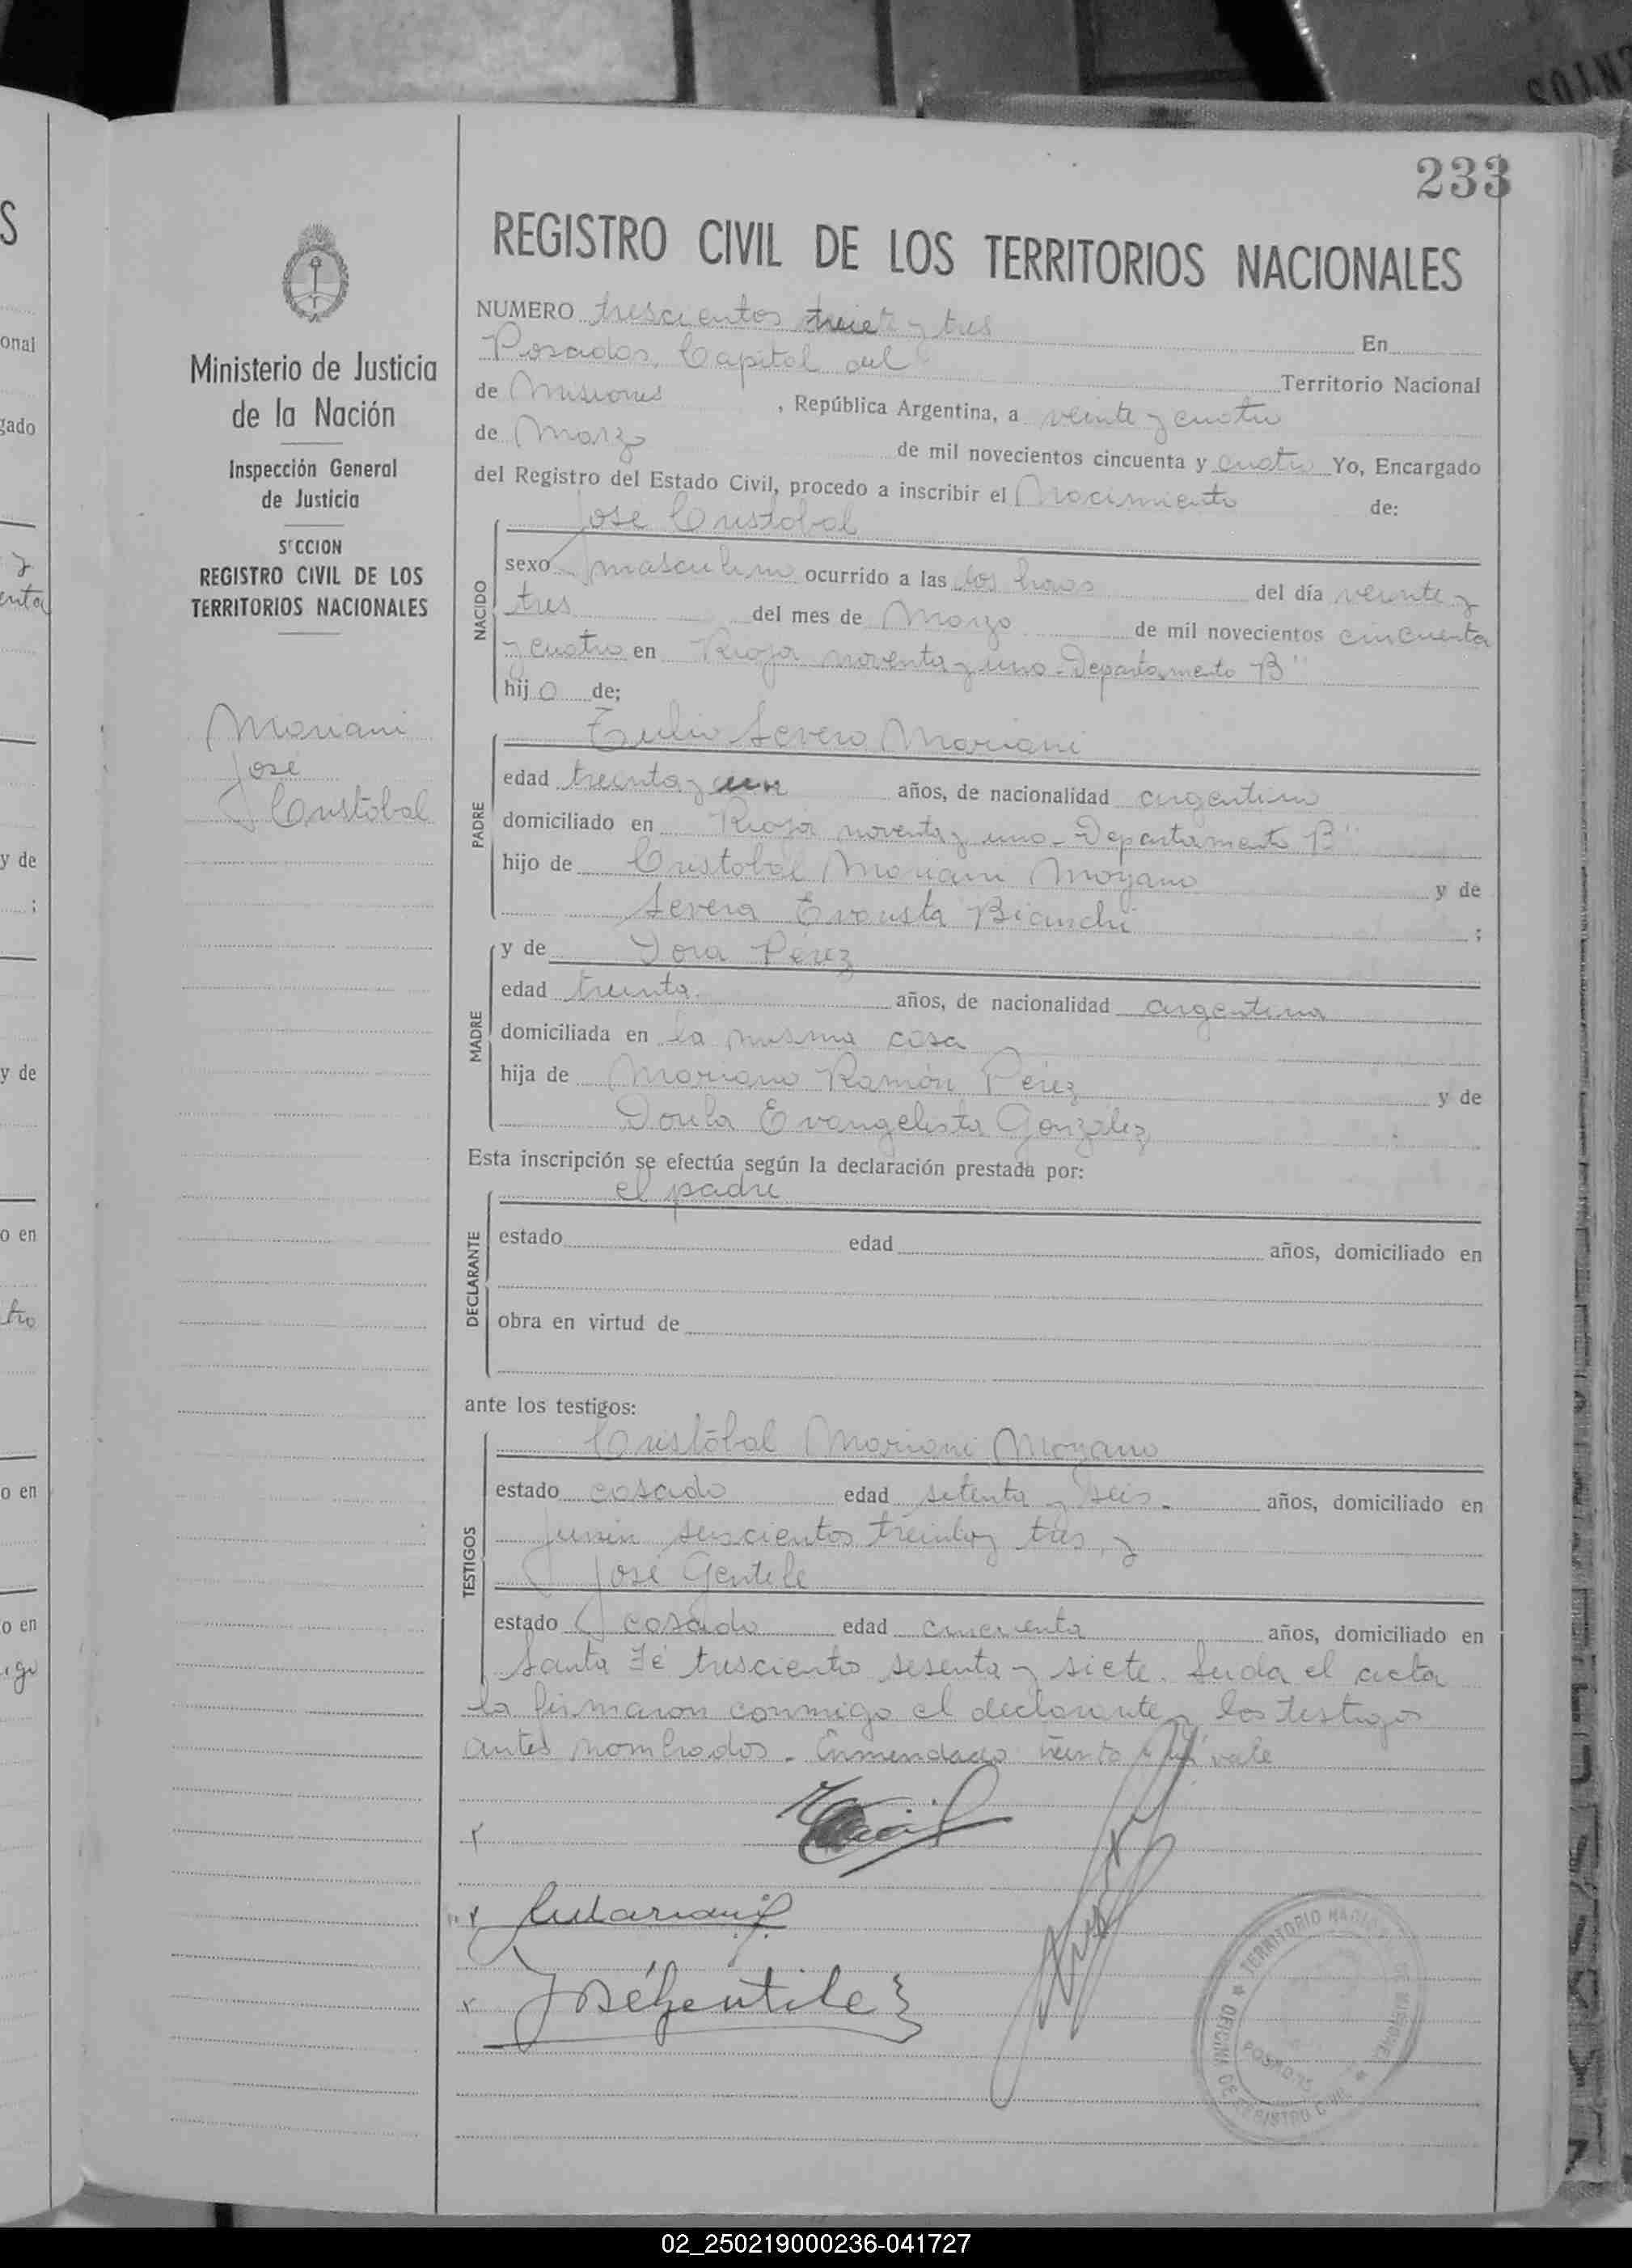 233
REGISTRO CIVIL DE LOS TERRITORIOS NACIONALES
Ministerio de Justicia
de la Nación
Inspección General
de Justicia
SECCION
REGISTRO CIVIL DE LOS
TERRITORIOS NACIONALES
Mariani
José
Cristobal
NUMERO trescientos treinta y tres En
Posadas, Capital del Territorio Nacional
de Misiones, República Argentina, a veinte y cuatro
de Marzo de mil novecientos cincuenta y cuatro Yo, Encargado
del Registro del Estado Civil, procedo a inscribir el Nacimiento de:
NACIDO
José Cristobal
sexo masculino ocurrido a las dos horas del día veinte y
tres del mes de Marzo de mil novecientos cincuenta
y cuatro en Rioja noventa y uno - Departamento B"
hijo de;
PADRE
Tulio Severo Mariani
edad treinta y un años, de nacionalidad argentino
domiciliado en Rioja noventa y uno - Departamento B"
hijo de Cristobal Mariani Moyano y de
Severa Evarista Bianchi ;
MADRE
y de Dora Pérez
edad treinta años, de nacionalidad argentina
domiciliada en la misma casa
hija de Mariano Ramón Pérez y de
Evangelista González
Esta inscripción se efectúa según la declaración prestada por:
DECLARANTE
el padre
estado edad años, domiciliado en
obra en virtud de
ante los testigos:
TESTIGOS
Cristóbal Mariani Moyano
estado casado edad setenta y seis - años, domiciliado en
Junin seiscientos treinta y tres, y
José Gentile
estado casado edad cincuenta años, domiciliado en
Santa Fé trescientos sesenta y siete. Leida el acta
la firmaron conmigo el declarante y los testigos
antes nombrados. Enmendado vale
José Gentile
OFICINA DE REGISTRO CIVIL
TERRITORIO NACIONAL DE MISIONES
POSADAS
02_250219000236-041727